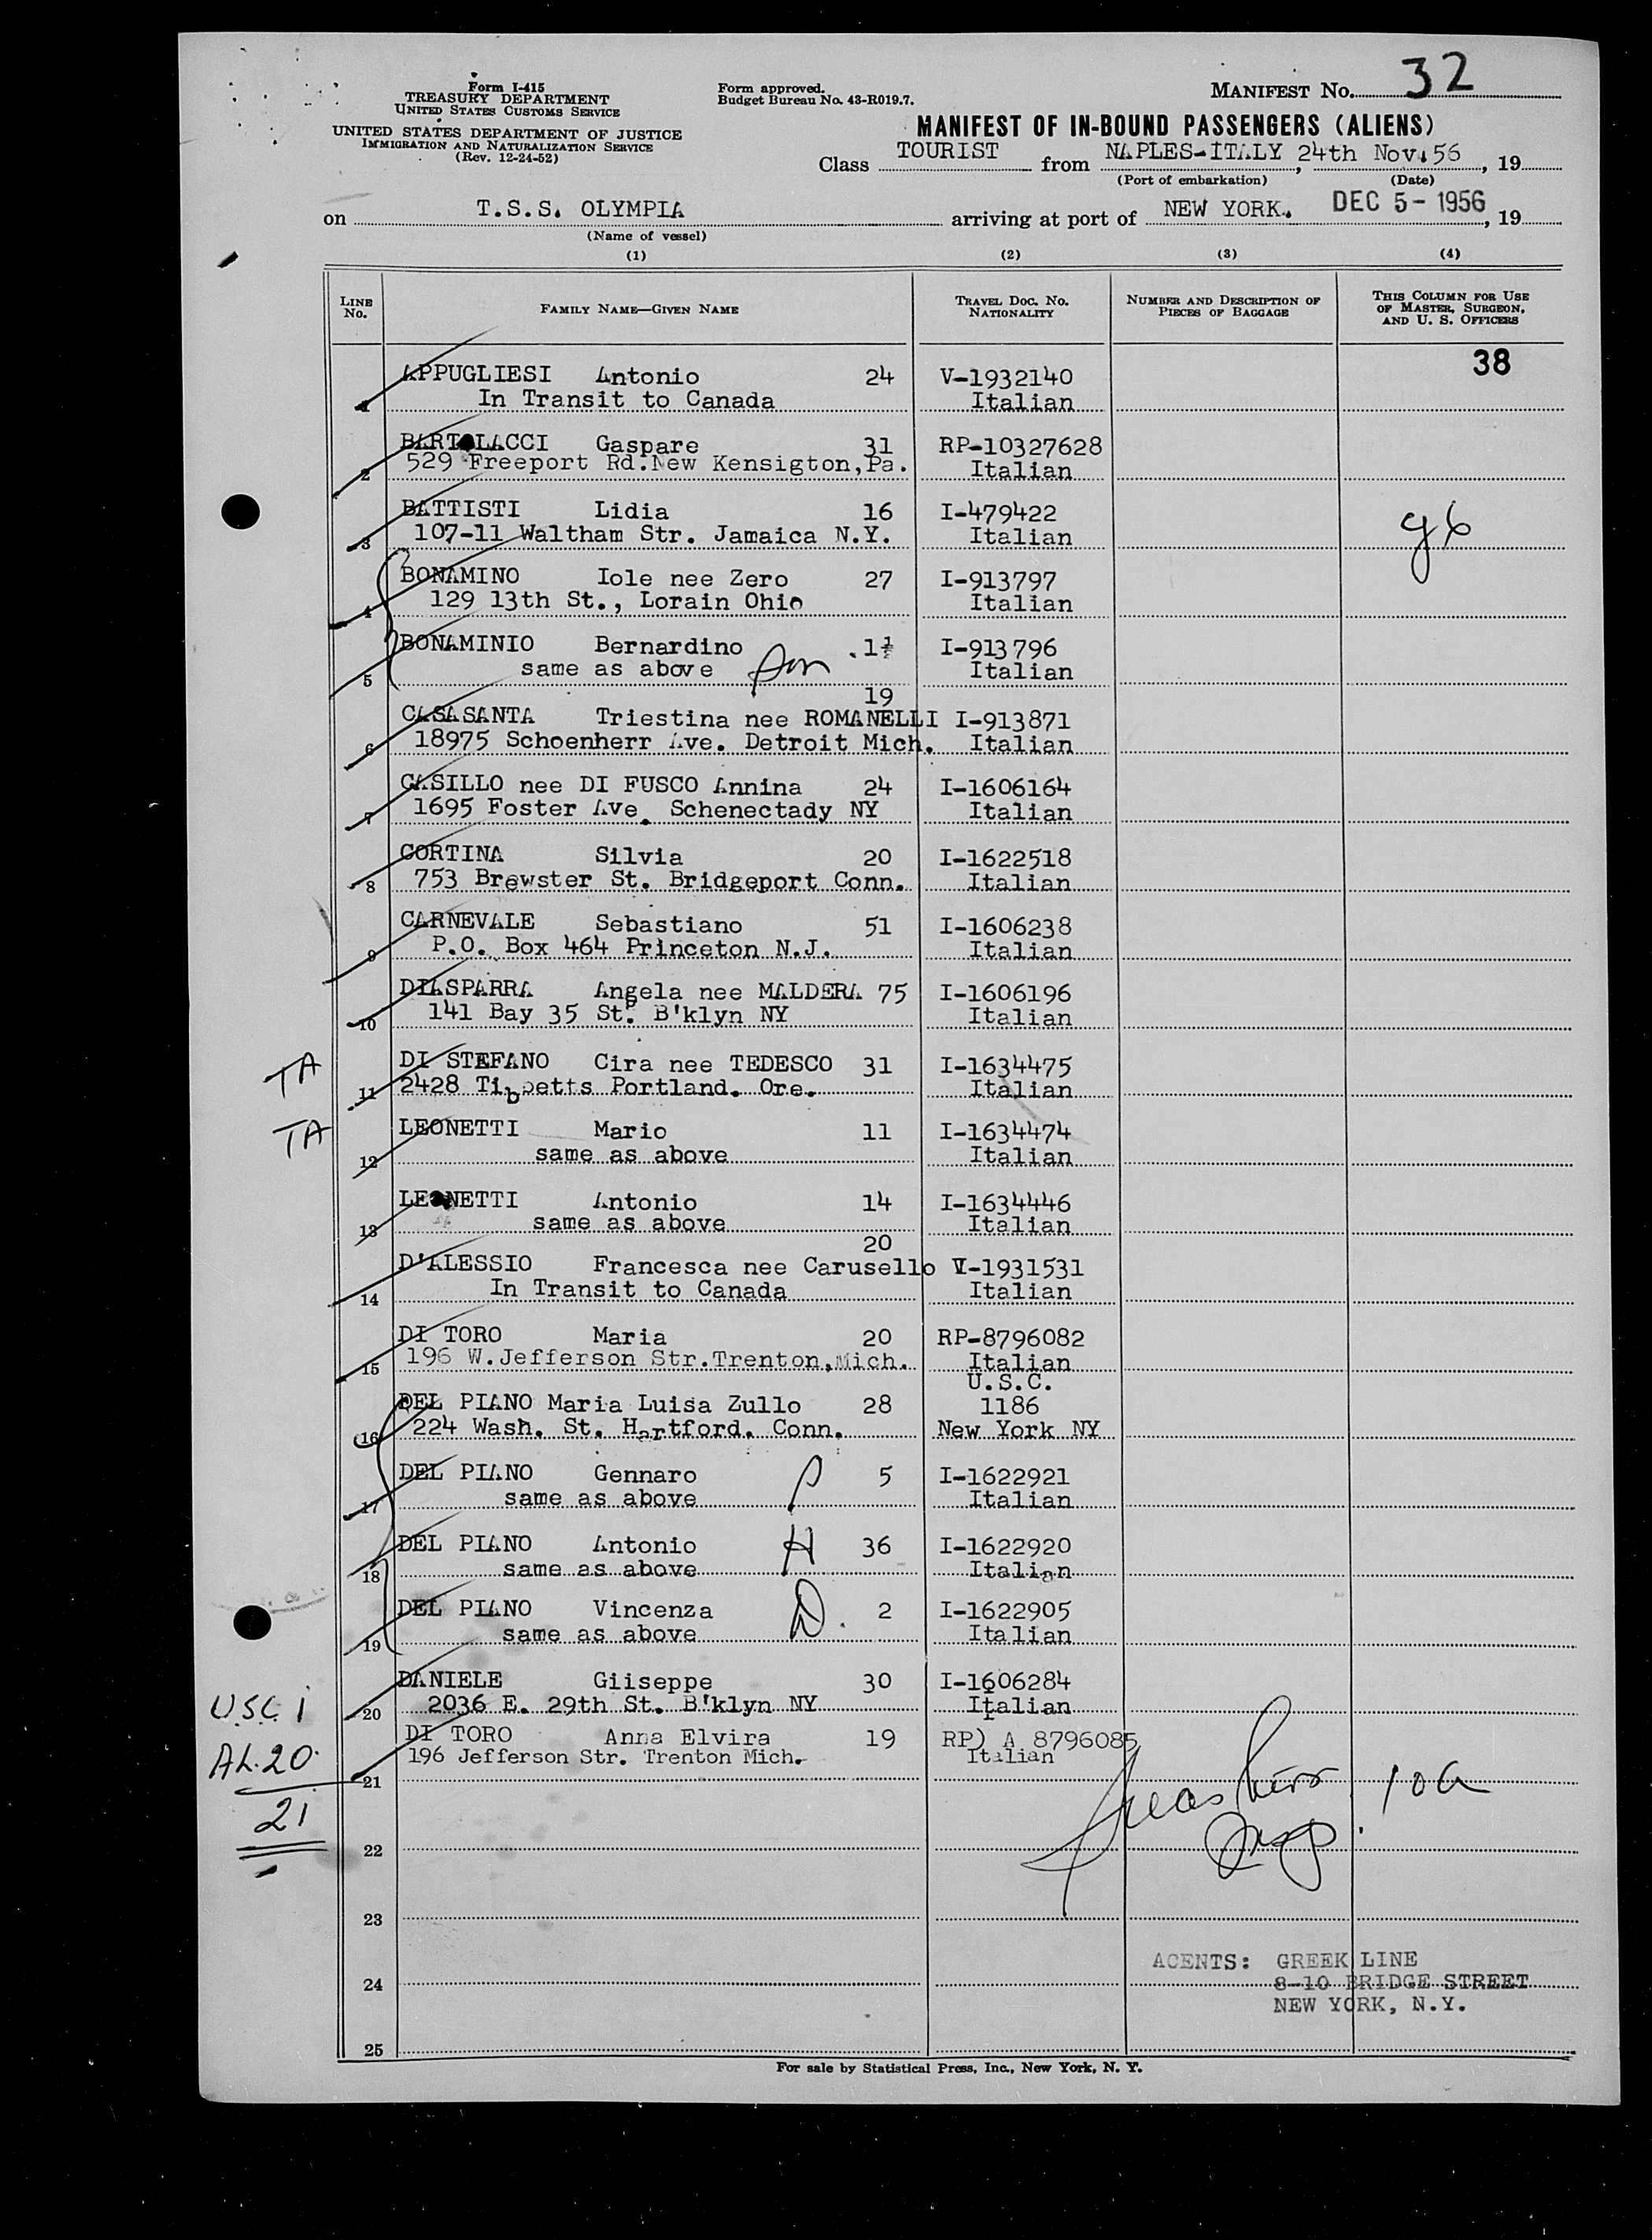 Form I-415
TREASURY DEPARTMENT
UNITED STATES CUSTOMS SERVICE
UNITED STATES DEPARTMENT OF JUSTICE
IMMIGRATION AND NATURALIZATION SERVICE
(Rev. 12-24-52)
Form approved.
Budget Bureau No. 43-R019.7.
MANIFEST No. 32
MANIFEST OF IN-BOUND PASSENGERS (ALIENS)
Class TOURIST from NAPLES-ITALY, 24th Nov.56, 19
(Port of embarkation) (Date)
on T.S.S. OLYMPIA arriving at port of NEW YORK. DEC 5- 1956, 19
(Name of vessel)
(1) (2) (3) (4)
LINE No. FAMILY NAME—GIVEN NAME TRAVEL DOC. No. NATIONALITY NUMBER AND DESCRIPTION OF PIECES OF BAGGAGE THIS COLUMN FOR USE OF MASTER, SURGEON, AND U. S. OFFICERS
38
APPUGLIESI Antonio 24 V-1932140
1 In Transit to Canada Italian
BARTOLACCI Gaspare 31 RP-10327628
2 529 Freeport Rd.New Kensigton,Pa. Italian
BATTISTI Lidia 16 I-479422
3 107-11 Waltham Str. Jamaica N.Y. Italian
BONAMINO Iole nee Zero 27 I-913797
4 129 13th St., Lorain Ohio Italian
BONAMINIO Bernardino .1½ I-913796
5 same as above son Italian
19
CASASANTA Triestina nee ROMANELLI I-913871
6 18975 Schoenherr Ave. Detroit Mich. Italian
CASILLO nee DI FUSCO Annina 24 I-1606164
7 1695 Foster Ave. Schenectady NY Italian
CORTINA Silvia 20 I-1622518
8 753 Brewster St. Bridgeport Conn. Italian
CARNEVALE Sebastiano 51 I-1606238
9 P.O. Box 464 Princeton N.J. Italian
DIASPARRA Angela nee MALDERA 75 I-1606196
10 141 Bay 35 St. B'klyn NY Italian
TA DI STEFANO Cira nee TEDESCO 31 I-1634475
11 2428 Tibbetts Portland. Ore. Italian
TA LEONETTI Mario 11 I-1634474
12 same as above Italian
LEONETTI Antonio 14 I-1634446
13 same as above Italian
20
D'ALESSIO Francesca nee Carusello V-1931531
14 In Transit to Canada Italian
DI TORO Maria 20 RP-8796082
15 196 W.Jefferson Str.Trenton,Mich. Italian
U.S.C.
DEL PIANO Maria Luisa Zullo 28 1186
16 224 Wash. St. Hartford. Conn. New York NY
DEL PIANO Gennaro 5 I-1622921
17 same as above Italian
DEL PIANO Antonio H 36 I-1622920
18 same as above Italian
DEL PIANO Vincenza D. 2 I-1622905
19 same as above Italian
DANIELE Giiseppe 30 I-1606284
20 2036 E. 29th St. B'klyn NY Italian
USC 1
DI TORO Anna Elvira 19 RP) A 8796085
196 Jefferson Str. Trenton Mich. Italian
AL.20
21
21
22
23
24
25
AGENTS: GREEK LINE
8-10 BRIDGE STREET
NEW YORK, N.Y.
For sale by Statistical Press, Inc., New York, N. Y.